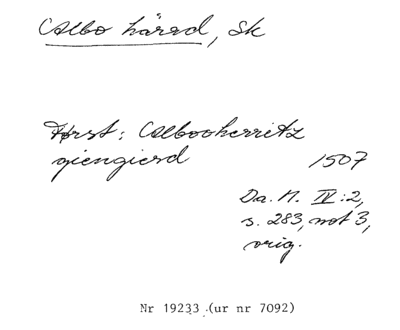 Albo härad, Sk
Först: Albooherritz
giengierd 1507
Da. M. IV:2,
s. 283, not 3,
orig.
Nr 19233 (ur nr 7092)